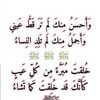 وَأَحْسَنُ مِنْكَ لَمْ تَرَ قَطُّ عَيْنِي
وَأَجْمَلُ مِنْكَ لَمْ تَلِدِ النِّسَاءُ
خُلِقْتَ مُبَرَّءً مِنْ كُلِّ عَيْبٍ
كَأَنَّكَ قَدْ خُلِقْتَ كَمَا تَشَاءُ